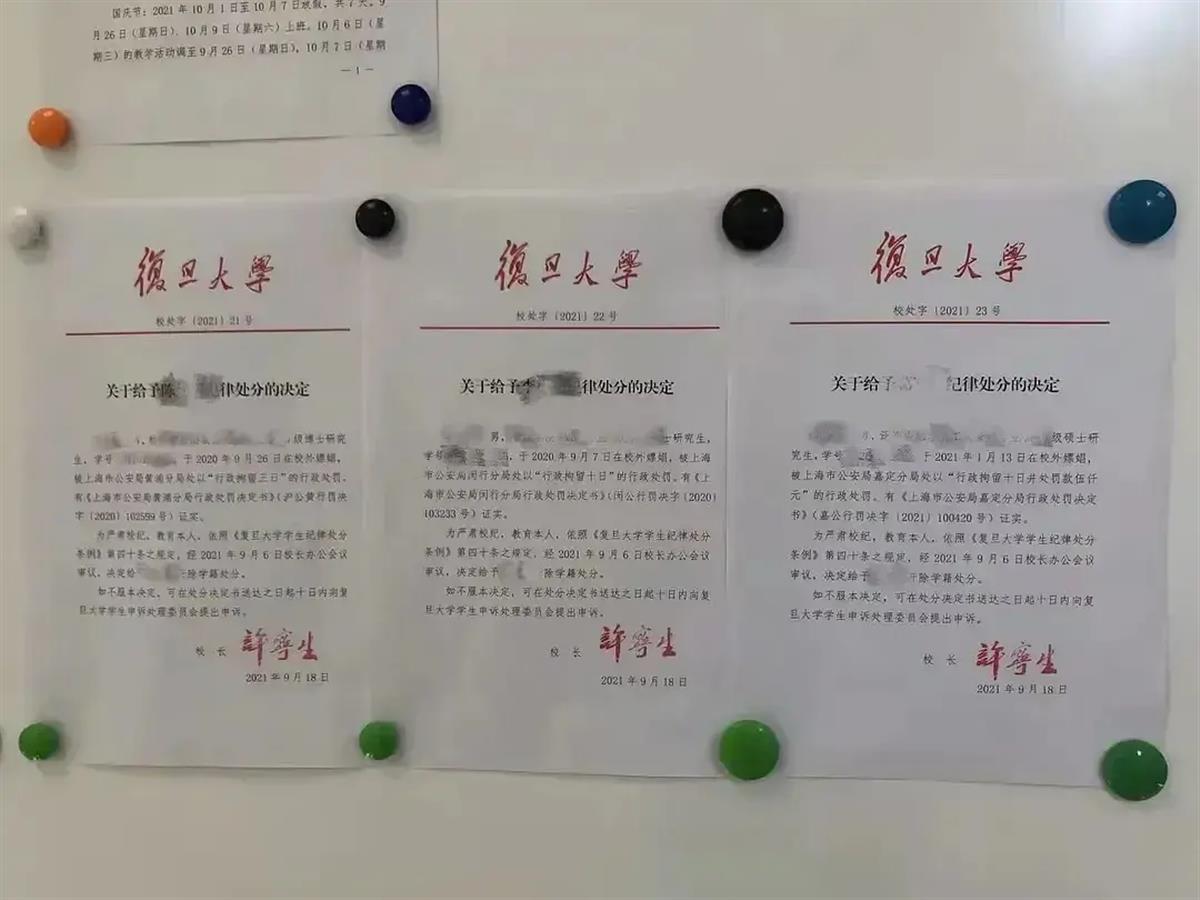 国庆节：2021 年 10 月 1 日至 10 月 7 日放假，共 7 天。9
月 26 日（星期日）、10 月 9 日（星期六）上班。10 月 6 日（星
期三）的教学活动调至 9 月 26 日（星期日），10 月 7 日（星期
—1—
復旦大學
校处字〔2021〕21 号
关于给予陈 律处分的决定
级博士研究
生，学号 ，于 2020 年 9 月 26 日在校外嫖娼，
被上海市公安局黄浦分局处以“行政拘留三日”的行政处罚。
有《上海市公安局黄浦分局行政处罚决定书》（沪公黄行罚决
字〔2020〕102599 号）证实。
为严肃校纪，教育本人，依照《复旦大学学生纪律处分
条例》第四十条之规定，经 2021 年 9 月 6 日校长办公会议
审议，决定给 除学籍处分。
如不服本决定，可在处分决定书送达之日起十日内向复
旦大学学生申诉处理委员会提出申诉。
校 长 許寧生
2021 年 9 月 18 日
復旦大學
校处字〔2021〕22 号
关于给予李 纪律处分的决定
男， 士研究生，
学号 ，于 2020 年 9 月 7 日在校外嫖娼，被上海
市公安局闵行分局处以“行政拘留十日”的行政处罚。有《上
海市公安局闵行分局行政处罚决定书》（闵公行罚决字〔2020〕
103233 号）证实。
为严肃校纪，教育本人，依照《复旦大学学生纪律处分
条例》第四十条之规定，经 2021 年 9 月 6 日校长办公会议
审议，决定给予 除学籍处分。
如不服本决定，可在处分决定书送达之日起十日内向复
旦大学学生申诉处理委员会提出申诉。
校 长 許寧生
2021 年 9 月 18 日
復旦大學
校处字〔2021〕23 号
关于给予 纪律处分的决定
级硕士研
究生，学号 ，于 2021 年 1 月 13 日在校外嫖娼，
被上海市公安局嘉定分局处以“行政拘留十日并处罚款伍仟
元”的行政处罚。有《上海市公安局嘉定分局行政处罚决定
书》（嘉公行罚决字〔2021〕100420 号）证实。
为严肃校纪，教育本人，依照《复旦大学学生纪律处分
条例》第四十条之规定，经 2021 年 9 月 6 日校长办公会议
审议，决定给予 开除学籍处分。
如不服本决定，可在处分决定书送达之日起十日内向复
旦大学学生申诉处理委员会提出申诉。
校 长 許寧生
2021 年 9 月 18 日